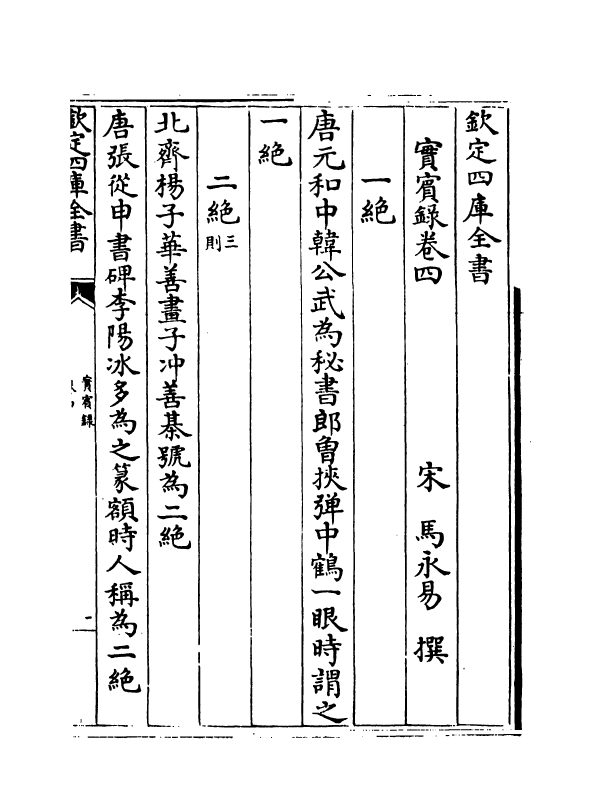 欽定四庫全書
實賓録卷四
宋 馬永易 撰
一絶
唐元和中韓公武為秘書郎曾挾彈中鶴一眼時謂之
一絶
二絶三則
北齊楊子華善畫子冲善棊號為二絶
唐張從申書碑李陽冰多為之篆額時人稱為二絶
欽定四庫全書
實賓録